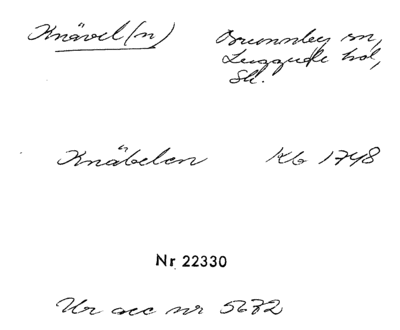 Knävel(n) Brunnby sn,
Luggude hd,
Sk.
Knäbelen Kb 1748
Nr 22330
Ur acc nr 5672